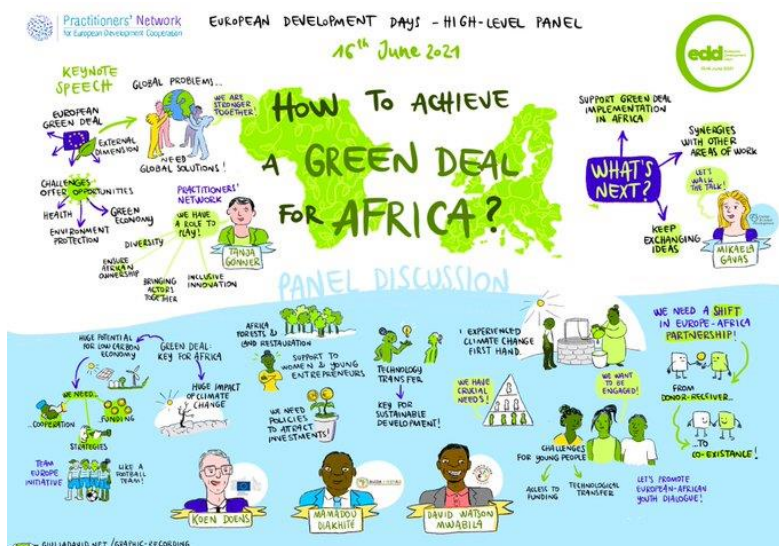 Practitioners' Network
for European Development Cooperation
EUROPEAN DEVELOPMENT DAYS - HIGH-LEVEL PANEL
16th JUNE 2021
edd
KEYNOTE
SPEECH
EUROPEAN
GREEN DEAL
EXTERNAL
DIMENSION
GLOBAL PROBLEMS...
WE ARE
STRONGER
TOGETHER!
NEED
GLOBAL SOLUTIONS!
CHALLENGES
OFFER OPPORTUNITIES
HEALTH
ENVIRONMENT
PROTECTION
GREEN
ECONOMY
PRACTITIONERS'
NETWORK
WE HAVE
A ROLE TO
PLAY!
DIVERSITY
ENSURE
AFRICAN
OWNERSHIP
BRINGING
ACTORS
TOGETHER
INCLUSIVE
INNOVATION
TANJA
GÖNNER
HOW TO ACHIEVE
A GREEN DEAL
FOR AFRICA?
SUPPORT GREEN DEAL
IMPLEMENTATION
IN AFRICA
SYNERGIES
WITH OTHER
AREAS OF WORK
WHAT'S
NEXT?
KEEP
EXCHANGING
IDEAS
LET'S
WALK
THE TALK!
MIKAELA
GAVAS
PANEL DISCUSSION
HUGE POTENTIAL
FOR LOW CARBON
ECONOMY
GREEN DEAL:
KEY FOR AFRICA
HUGE IMPACT
OF CLIMATE
CHANGE
WE NEED...
...COOPERATION
...FUNDING
STRATEGIES
TEAM
EUROPE
INITIATIVE
LIKE A
FOOTBALL
TEAM!
KOEN DOENS
AFRICA
FORESTS &
LAND RESTAURATION
SUPPORT TO
WOMEN & YOUNG
ENTREPRENEURS
WE NEED
POLICIES
TO ATTRACT
INVESTMENTS!
TECHNOLOGY
TRANSFER
KEY FOR
SUSTAINABLE
DEVELOPMENT!
MAMADOU
DIAKHITÉ
I EXPERIENCED
CLIMATE CHANGE
FIRST HAND.
WE HAVE
CRUCIAL
NEEDS!
WE WANT
TO BE
ENGAGED!
CHALLENGES
FOR YOUNG PEOPLE
ACCESS TO
FUNDING
TECHNOLOGICAL
TRANSFER
DAVID WATSON
MWABILA
WE NEED A SHIFT
IN EUROPE-AFRICA
PARTNERSHIP!
FROM
DONOR-RECEIVER...
...TO
CO-EXISTANCE!
LET'S PROMOTE
EUROPEAN-AFRICAN
YOUTH DIALOGUE!
GIULIADAVID.NET / GRAPHIC-RECORDING